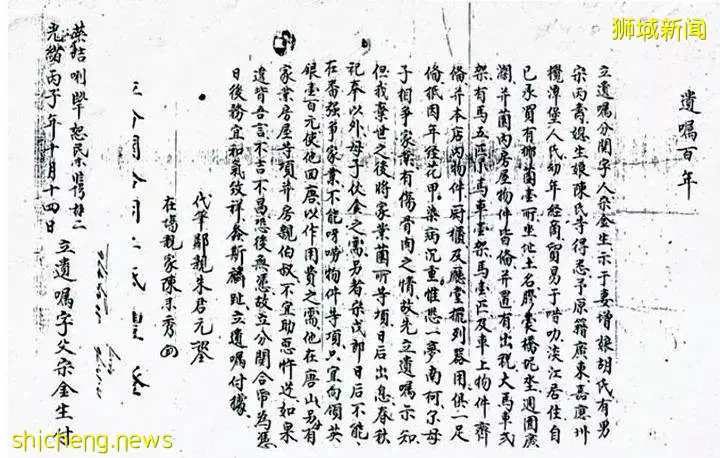 狮城新闻
遺囑百年
立遺囑分閱字人宗金生示于妻增娘胡氏有男
宗丙青媳生娘陳氏等得悉予原籍廣東嘉應州
潭堡人氏幼年經商貿易于叻淡江居住自
己承買有椰園壹所坐土名膠橋坐週圍廣
濶并園內房屋物件皆備并置有出稅大馬車弍
架有馬五匹馬車壹架馬壹匹及車上物件齊
備并本店內物件廚櫃及廳堂擺列器用俱一足
偹抵因年經花甲染病沉重惟恐一夢南柯尔母
子相爭家業有傷骨肉之情故先立遺囑示知
但我棄世之後將家業園所等項日後出息春秋
祀奉以外母子伙食之需另者宗戊郎日後不能
在番强爭家業不能物件等項只宜向領英
銀壹百元使他回唐以作用費之需他在唐山另有
家業房屋等項并房親伯叔不宜助惡忤逆如果
違背吾言不吉不昌恐後無憑故立分閱合同為憑
日後務宜和氣致祥螽斯麟趾立遺囑付據
代筆親朱君元
在塲親家陳秀
立遺囑字父宗金生付
光緒丙子年十月十四日
shicheng.news